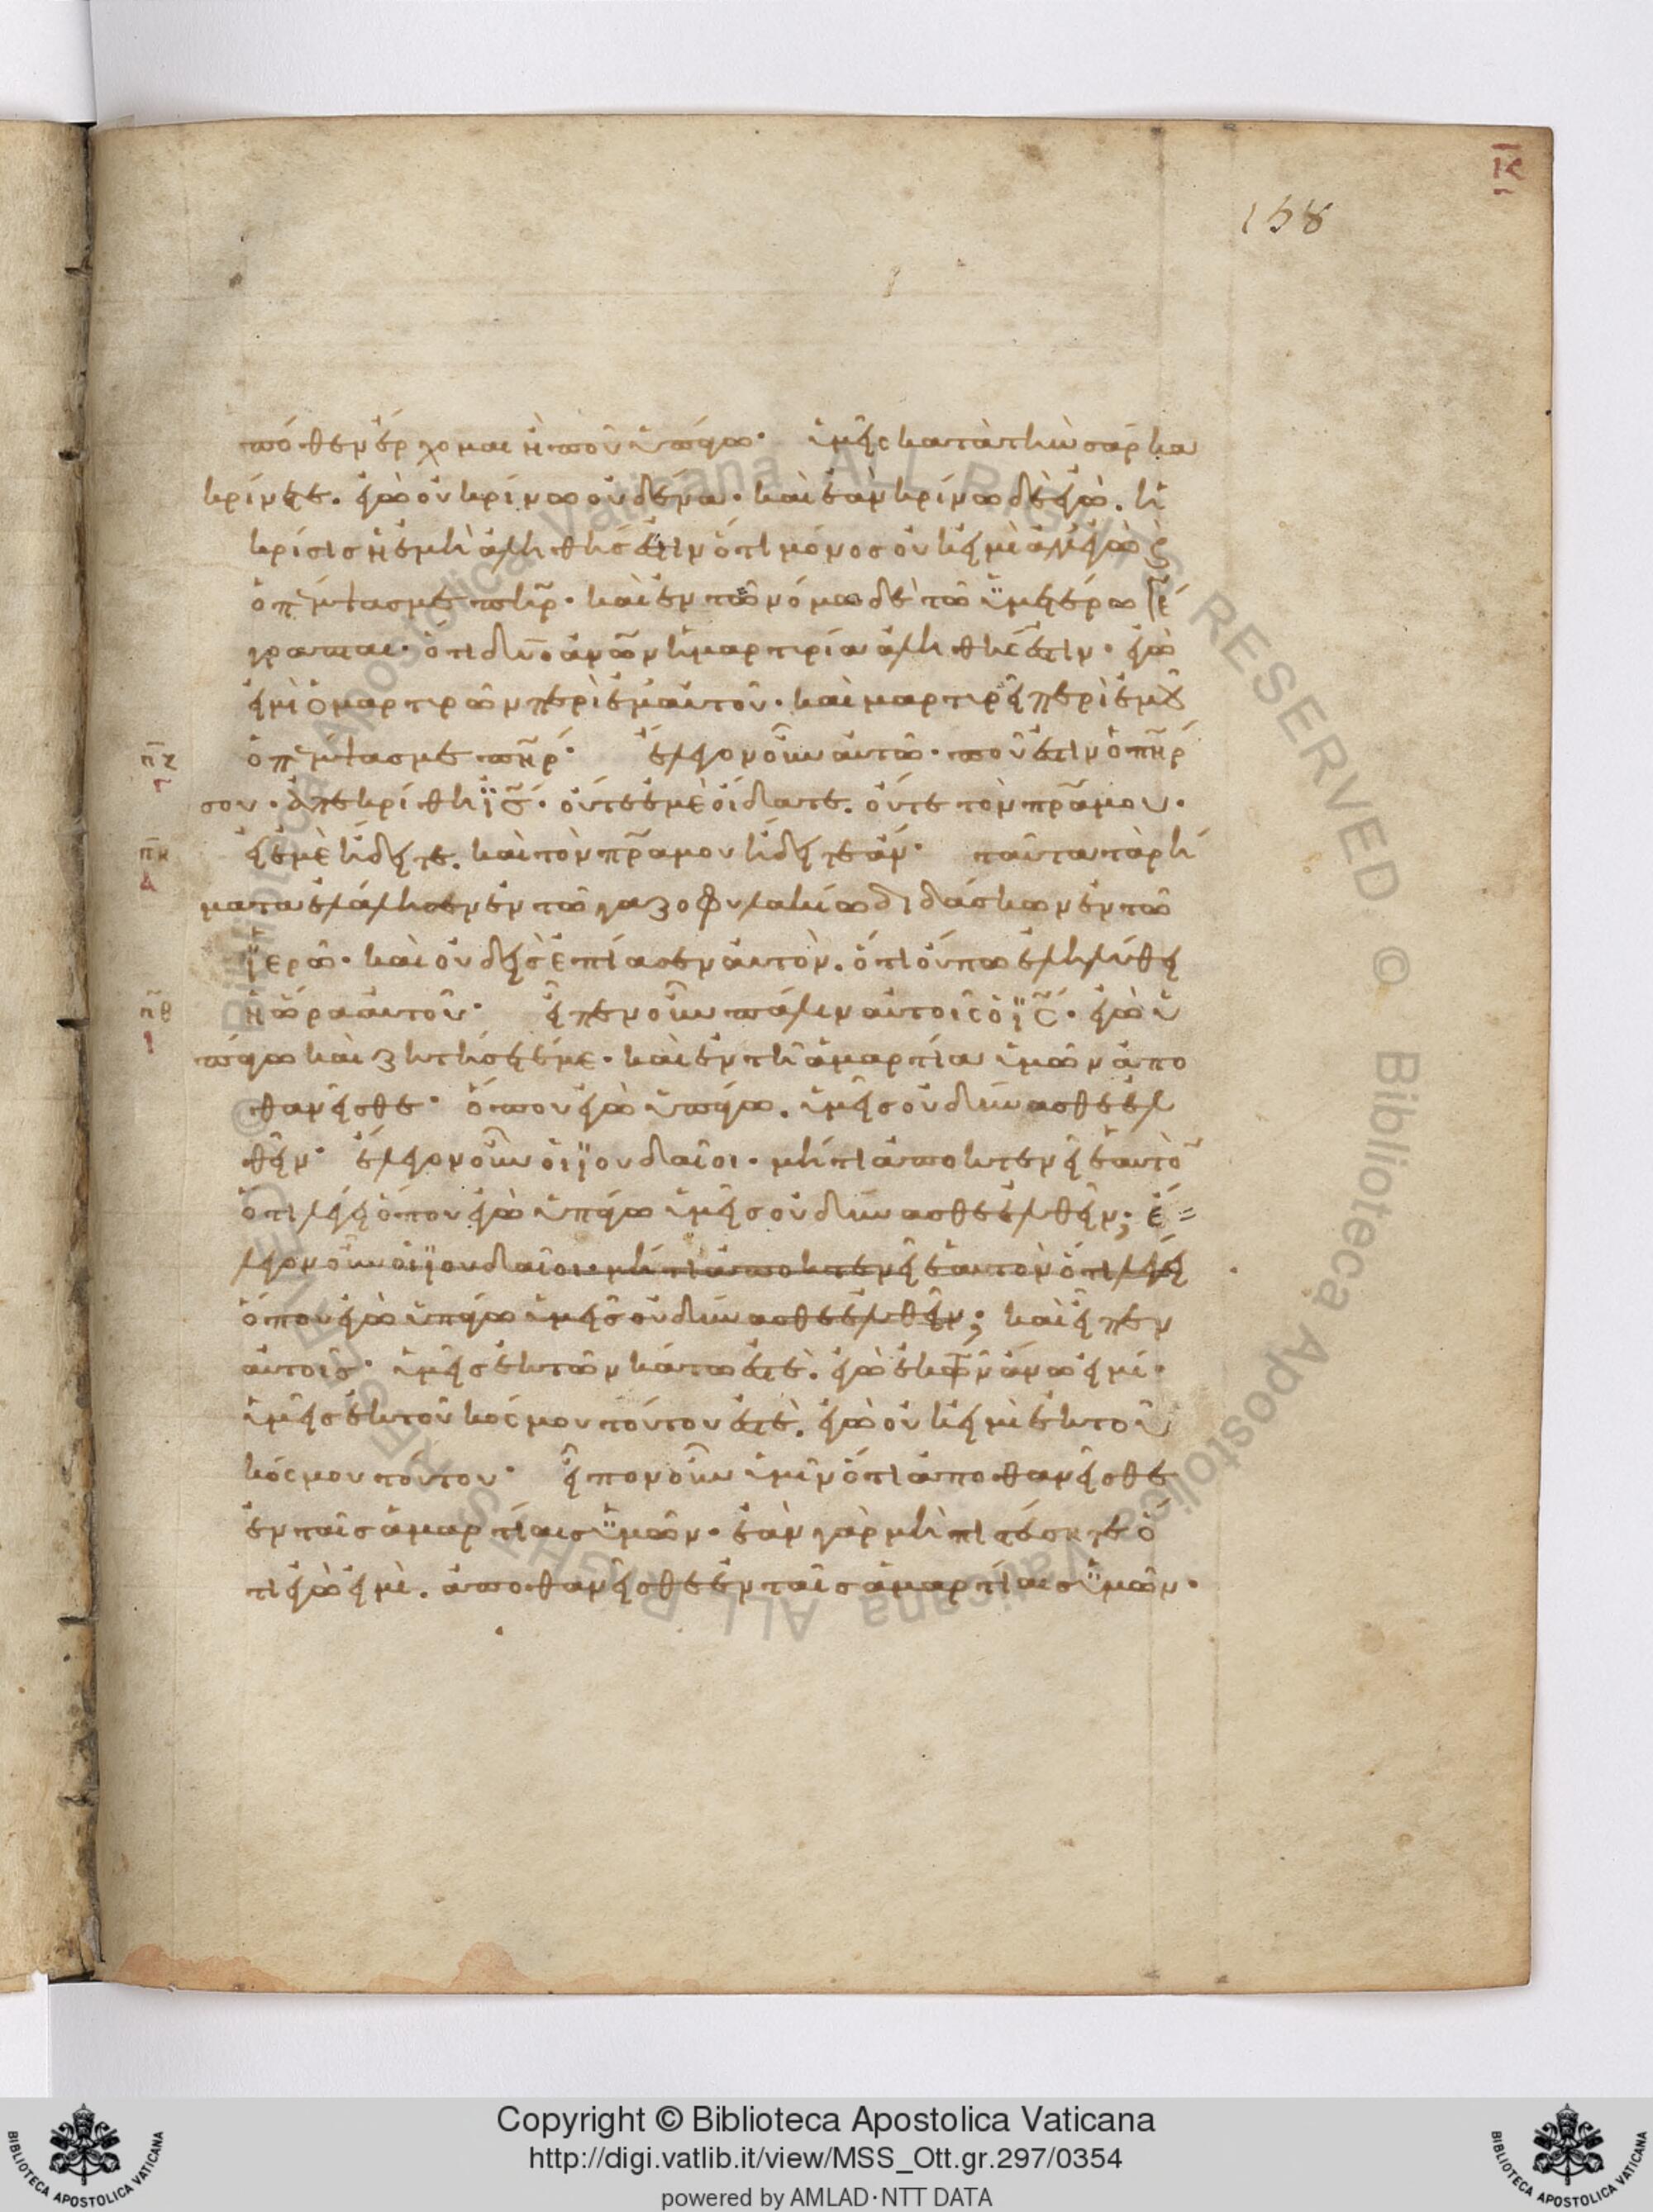 κ̅
158
πόθεν ἔρχομαι ἢ ποῦ ὑπάγω· ὑμεῖς κατὰ τὴν σάρκα
κρίνετε. ἐγὼ οὐ κρίνω οὐδένα· καὶ ἐὰν κρίνω δὲ ἐγὼ. ἡ
κρίσις ἡ ἐμὴ ἀληθής ἐστιν ὅτι μόνος οὐκ εἰμὶ ἀλλ' ἐγὼ ϗ
ὁ πέμψας με πηρ· καὶ ἐν τῷ νόμω δὲ τῷ ὑμετέρω γέ
γραπται· ὅτι δύο ἀνῶν ἡ μαρτυρία ἀληθής ἐστιν· ἐγὼ
εἰμὶ ὁ μαρτυρῶν περὶ ἐμαυτοῦ· καὶ μαρτυρεῖ περὶ ἐμοῦ
ὁ πέμψας με πηρ· ἔλεγον οὖν αὐτῶ· ποῦ ἐστιν ὁ πηρ
σου· ἀπεκρίθη ϊς· οὔτε ἐμὲ οἴδατε. οὔτε τὸν πρα μου·
εἰ ἐμὲ ἤδειτε. καὶ τὸν πρα μου ἤδειτε ἄν· ταῦτα τὰ ῥή
ματα ἐλάλησεν ἐν τῷ γαζοφυλακίω διδάσκων ἐν τῷ
ϊερῶ· καὶ οὐδεὶς ἐπίασεν αὐτὸν. ὅτι οὔπω ἐληλύθει
ἡ ὥρα αὐτοῦ· εἶπεν οὖν πάλιν αὐτοῖς ὁ ϊς· ἐγὼ ὑ
πάγω καὶ ζητήσετέ με· καὶ ἐν τῇ ἁμαρτία ὑμῶν ἀπο
θανεῖσθε· ὅπου ἐγὼ ὑπάγω. ὑμεῖς οὐ δύνασθε ἐλ
θεῖν· ἔλεγον οὖν οἱ ϊουδαῖοι· μήτι ἀποκτενεῖ ἑαυτὸ
ὅτι λέγει ὅπου ἐγὼ ὑπάγω ὑμεῖς οὐ δύνασθε ἐλθεῖν; ἔ=
λεγον οὖν οἱ ϊουδαῖοι· μήτι ἀποκτενεῖ ἑαυτὸν ὅτι λέγει
ὅπου ἐγὼ ὑπάγω ὑμεῖς οὐ δύνασθε ἐλθεῖν; καὶ εἶπεν
αὐτοῖς· ὑμεῖς ἐκ τῶν κάτω ἐστὲ. ἐγὼ ἐκ τῶν ἄνω εἰμί·
ὑμεῖς ἐκ τοῦ κόσμου τούτου ἐστὲ. ἐγὼ οὐκ εἰμὶ ἐκ τοῦ
κόσμου τούτου· εἶπον οὖν ὑμῖν ὅτι ἀποθανεῖσθε
ἐν ταῖς ἁμαρτίαις ὑμῶν· ἐὰν γὰρ μὴ πιστεύσητε ὅ
τι ἐγὼ εἰμὶ. ἀποθανεῖσθε ἐν ταῖς ἁμαρτίαις ὑμῶν·
πζ
γ
πη
α
πθ
ι
Copyright © Biblioteca Apostolica Vaticana
http://digi.vatlib.it/view/MSS_Ott.gr.297/0354
powered by AMLAD·NTT DATA
BIBLIOTECA APOSTOLICA VATICANA
BIBLIOTECA APOSTOLICA VATICANA